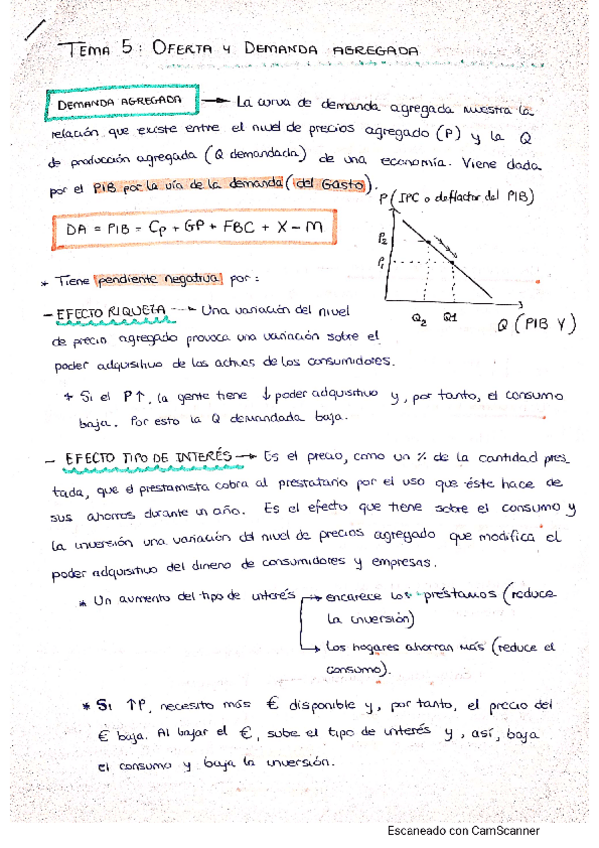 TEMA 5: OFERTA Y DEMANDA AGREGADA
DEMANDA AGREGADA → La curva de demanda agregada muestra la
relación que existe entre el nivel de precios agregado (P) y la Q
de producción agregada (Q demandada) de una economía. Viene dada
por el PIB por la vía de la demanda (del Gasto).
P (IPC o deflactor del PIB)
DA = PIB = Cp + GP + FBC + X - M
P2
P1
* Tiene pendiente negativa por:
Q2 Q1
Q (PIB Y)
- EFECTO RIQUEZA → Una variación del nivel
de precio agregado provoca una variación sobre el
poder adquisitivo de los activos de los consumidores.
* Si el P↑, la gente tiene ↓ poder adquisitivo y, por tanto, el consumo
baja. Por esto la Q demandada baja.
- EFECTO TIPO DE INTERÉS → Es el precio, como un % de la cantidad pres_
tada, que el prestamista cobra al prestatario por el uso que éste hace de
sus ahorros durante un año. Es el efecto que tiene sobre el consumo y
la inversión una variación del nivel de precios agregado que modifica el
poder adquisitivo del dinero de consumidores y empresas.
* Un aumento del tipo de interés → encarece los préstamos (reduce
la inversión)
→ Los hogares ahorran más (reduce el
consumo).
* Si ↑P, necesito más € disponible y, por tanto, el precio del
€ baja. Al bajar el €, sube el tipo de interés y, así, baja
el consumo y baja la inversión.
Escaneado con CamScanner